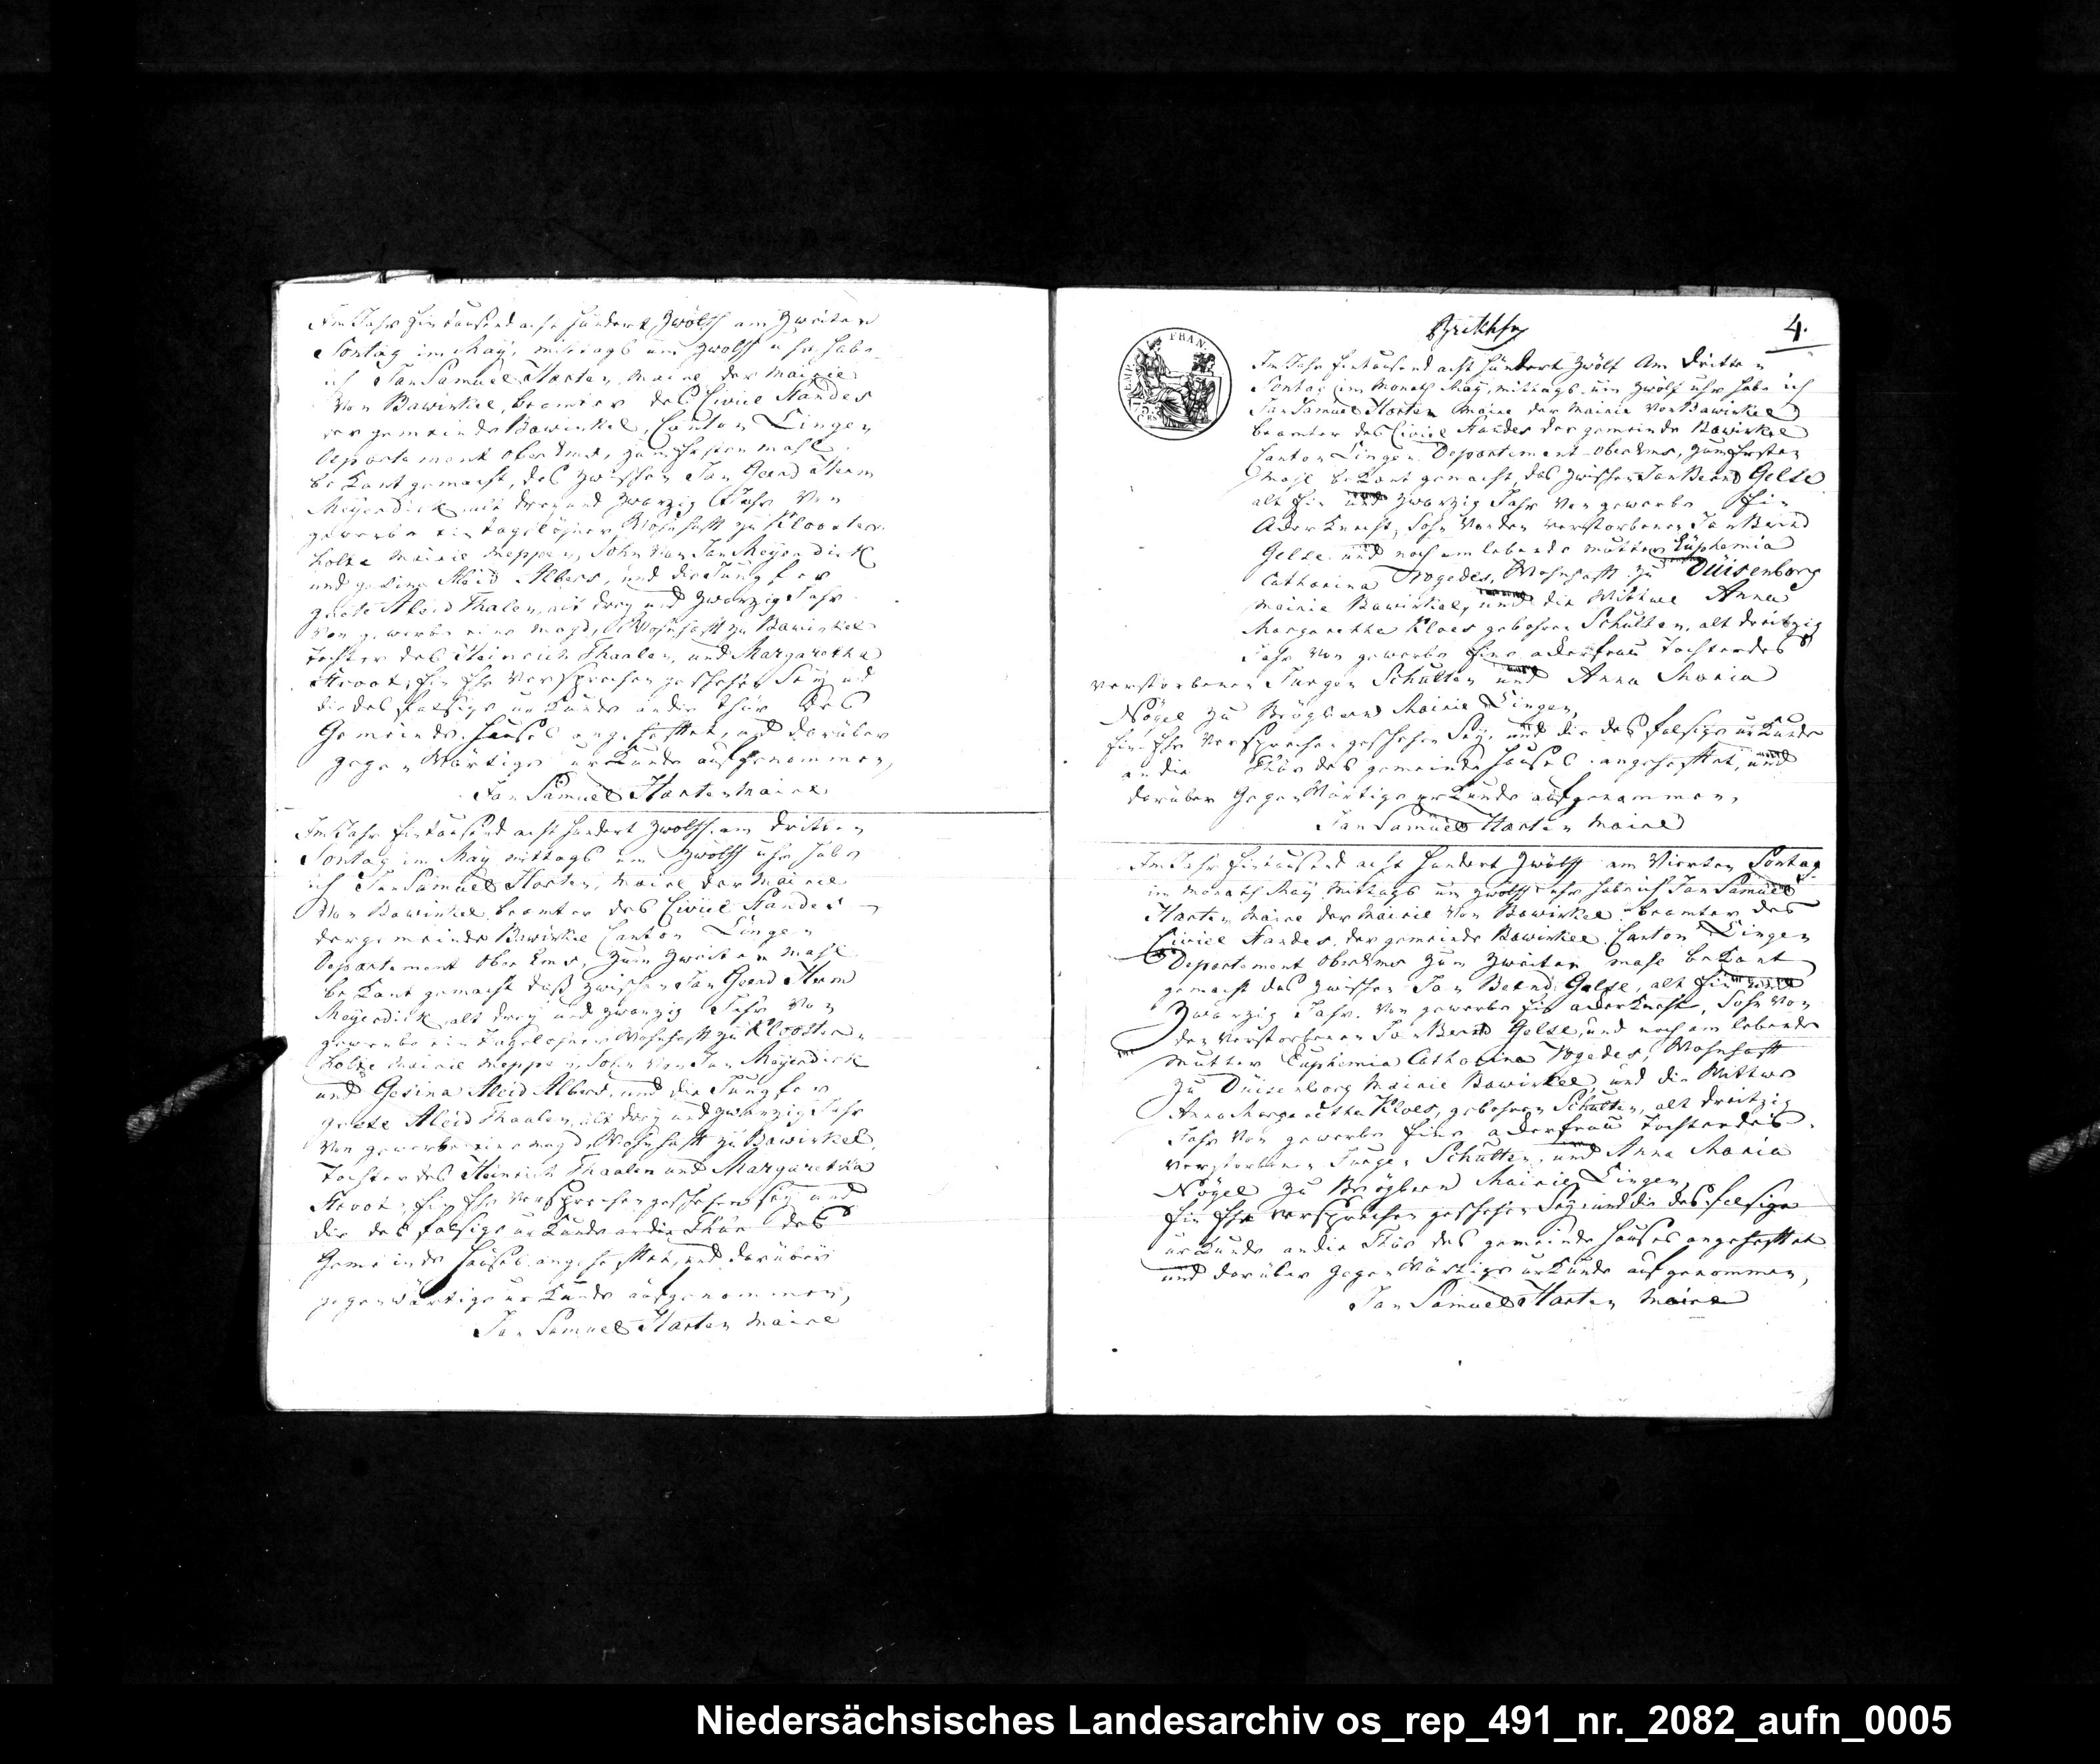 Im Jahr Eintausend acht hundert Zwölff am Zweiten
Sontag im May, mittags um zwolff uhr habe
ich Jan Samuel Harten, Maire der Mairie
von Bawinkel, beamter des Civiel Standes
der gemeinde Bawinkel, Canton Lingen
Departement Ober Ems, zum Ersten mahl
bekant gemacht, das zwischen Jan Geerd Herm
Meyerdick alt drey und zwanzig Jahr von
gewerbe ein tagelöhner, Wohnhaft zu Klooster
holte Mairie Meppen, Sohn von Jan Meyerdick
und gesina Aleid Albers, und die Jungfer
grete Aleid Thalen, alt drey und zwanzig Jahr
von gewerbe eine magd, Wohnhaft zu Bawinkel
tochter des Heinrich Thaalen, und Margaretha
ein Ehe Versprechen geschehen Sey und
die des falsige urkunde an die thür des
Gemeinde hauses angehefftet, und darüber
gegenWärtige urkunde aufgenommen,
Jan Samuel Harten Maire
Im Jahr Eintausend acht hundert zwolff am dritten
Sontag im May mittags um zwolff uhr habe
ich Jan Samuel Harten, Maire der Mairie
von Bawinkel beamter des Civiel Standes
der gemeinde Bawinkel Canton Lingen
Departement Ober Ems, zum zweiten mahl
bekant gemacht daß zwischen Jan Geerd Herm
Meyerdick, alt drey und zwanzig Jahr von
gewerbe ein tagelohner Wohnhaft zu Klooster
holte Mairie Meppen, Sohn von Jan Meyerdick
und Gesina Aleid Albers, und die Jungfer
grete Aleid Thaalen, alt drey und zwanzig Jahr
von gewerbe eine magd, Wohnhaft zu Bawinkel,
tochter des Heinrich Thaalen und Margaretha
ein Ehe versprechen geschehen sey und
die des falsige urkunde an die Thür des
Gemeinde hauses angehefftet, und darüber
gegenwärtige urkunde aufgenommen,
Jan Samuel Harten Maire
4.
EMPIRE FRAN.
Im Jahr Eintausend acht hundert zwölf Am dritten
Sontag im Monath May, mittags um zwölf uhr habe ich
Jan Samuel Harten Maire der Mairie von Bawinkel
beamter des Civiel Standes der gemeinde Bawinkel
Canton Lingen Departement Ober Ems, zum Ersten
mahl bekant gemacht, das zwischen Jan Bernd Gelse
alt Ein und zwanzig Jahr von gewerbe Ein
Aderknecht, Sohn von den verstorbenen Jan Bernd
Gelse und noch am lebende mutter Euphemia
Catharina Vogedes, Wohnhafft zu Duisenborg
Mairie Bawinkel, und die Wittwe Anna
Margaretha Kloes gebohren Schulten, alt dreitzig
Jahr von gewerbe Eine aderfrau tochter des
verstorbenen Jurgen Schulten und Anna Maria
Nögel zu Brögbern Mairie Lingen,
Ein Ehe Versprechen geschehen Sey, und die des falsige urkunde
an die Thür des gemeinde hauses angehefftet, und
darüber GegenWärtige urkunde aufgenommen,
Jan Samuel Harten Maire
Im Jahr Eintausend acht hundert zwölff am Vierten Sontag
im Monath May Mittags um zwolff uhr habe ich Jan Samuel
Harten Maire der Mairie von Bawinkel beamter des
Civiel Standes, der gemeinde Bawinkel Canton Lingen
Departement OberEms zum zweiten mahl bekant
gemacht das zwischen Jan Bernd Gelse, alt Ein und
zwanzig Jahr. von gewerbe Ein aderknecht, Sohn von
den verstorbenen Jan Bernd Gelse, und noch am lebende
Mutter Euphemia Catharina Vogedes, Wohnhafft
zu Duisenborg Mairie Bawinkel, und die Wittwe
Anna Margaretha Kloes, gebohren Schulten, alt dreitzig
Jahr von gewerbe Eine aderfrau tochter des
verstorbenen Jurgen Schulten, und Anna Maria
Nögel zu Brögbern Mairie Lingen,
Ein Ehe versprechen geschehen Sey, und die des falsige
urkunde an die Thür des gemeinde hauses angehefftet
und darüber GegenWärtige urkunde aufgenommen,
Jan Samuel Harten Maire
Niedersächsisches Landesarchiv os_rep_491_nr._2082_aufn_0005